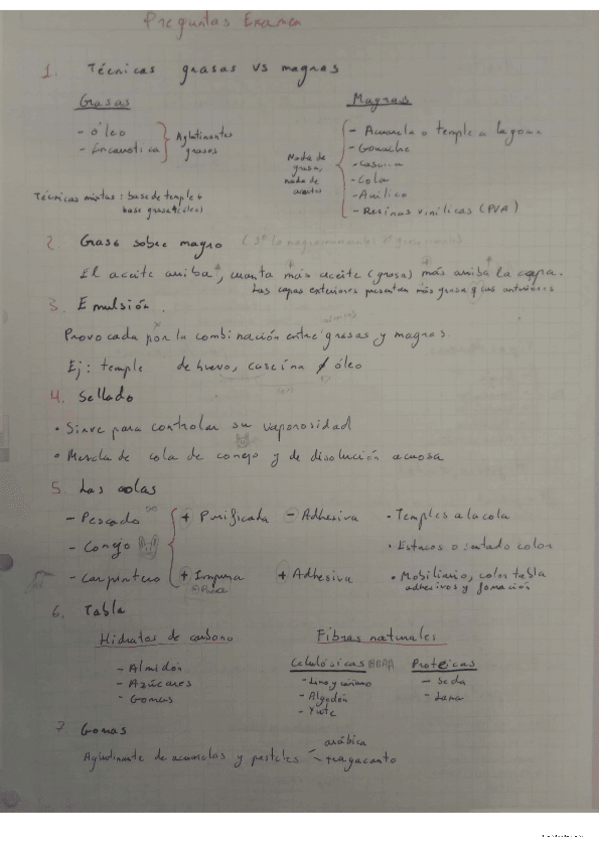 Preguntas Examen
1. Técnicas grasas vs magras
Grasas
- óleo
- Encaustica
Aglutinantes
grasos
Técnicas mixtas: base de temple +
base grasa (óleo)
Magras
Nada de
grasa,
nada de
aceites
- Acuarela o temple a la goma
- Gouache
- Caseina
- Cola
- Acrílico
- Resinas vinílicas (PVA)
2. Graso sobre magro
El aceite arriba, cuanta más aceite (grasa) más arriba la capa.
Las capas exteriores presentan más grasa q las anteriores
3. Emulsión.
Provocada por la combinación entre grasas y magras.
Ej: temple de huevo, caseína y óleo
4. Sellado
• Sirve para controlar su
• Mezcla de cola de conejo y de disolución acuosa
5. Las colas
- Pescado
- Conejo
- Carpintero
+ Purificada - Adhesiva
+ Impura + Adhesiva
• Temples a la cola
• Estucos o sentado color
• Mobiliario, color tabla
adhesivos y
6. Tabla
Hidratos de carbono
- Almidón
- Azúcares
- Gomas
Fibras naturales
Celulósicas
- Lino y cáñamo
- Algodón
- Yute
Proteicas
- Seda
- Lana
7. Gomas
Aglutinante de acuarelas y pasteles
arábica
tragacanto